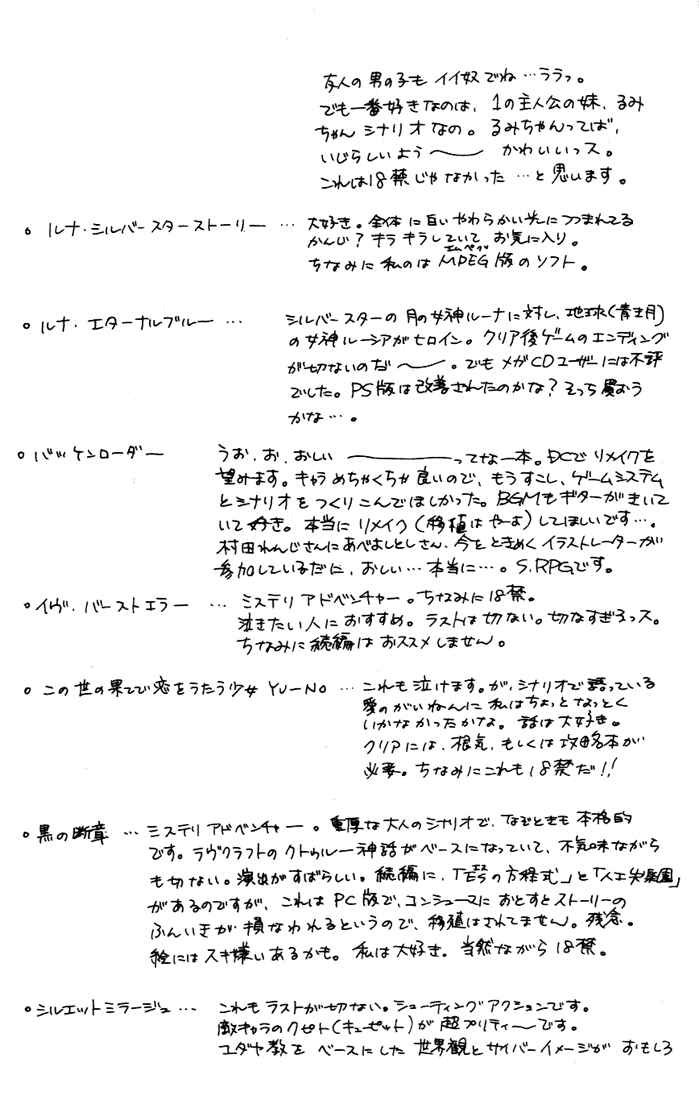 友人の男の子もイイ奴でね…ララっ。
でも一番好きなのは、1の主人公の妹、るみ
ちゃんシナリオなの。るみちゃんってば、
いじらしいよう〜 かわいいっス。
これは18禁じゃなかった…と思います。
○ ルナ・シルバースターストーリー … 大好き。全体に白いやわらかい光につつまれてる
かんじ?キラキラしていて、お気に入り。
エムペグ
ちなみに私のはMPEG版のソフト。
○ ルナ・エターナルブルー … シルバースターの月の女神ルーナに対し、地球(青き月)
の女神ルーシアがヒロイン。クリア後ゲームのエンディング
が切ないのだ〜。でもメガCDユーザーには不評
でした。PS版は改善されたのかな?そっち買おう
かな…。
○ バッケンローダー うお、お、おしい ――ってな一本。DCでリメイクを
望みます。キャラめちゃくちゃ良いので、もうすこし、ゲームシステム
とシナリオをつくりこんでほしかった。BGMもギターがきいて
いて好き。本当にリメイク(移植はやーよ)してほしいです…。
村田れんじさんにあべよしとしさん、今をときめくイラストレーターが
参加しているだに、おしい…本当に…。S.RPGです。
○ イヴ・バーストエラー … ミステリアドベンチャー。ちなみに18禁。
泣きたい人におすすめ。ラストは切ない。切なすぎるっス。
ちなみに続編はおススメしません。
○ この世の果てで恋をうたう少女 YU-NO … これも泣けます。が、シナリオで語っている
愛のがいねんに私はちょっとなっとく
いかなかったかな。話は大好き。
クリアには、根気、もしくは攻略本が
必要。ちなみにこれも18禁だ!!
○ 黒の断章 … ミステリアドベンチャー。重厚な大人のシナリオで、なぞときも本格的
です。ラヴクラフトのクトゥルー神話がベースになっていて、不気味ながら
も切ない。演出がすばらしい。続編に、「琴の方程式」と「人工失楽園」
があるのですが、これはPC版で、コンシューマにおとすとストーリーの
ふんいきが損なわれるというので、移植はされてません。残念。
絵にはスキ嫌いあるかも。私は大好き。当然ながら18禁。
○ シルエットミラージュ … これもラストが切ない。シューティングアクションです。
敵キャラのクゼト(キューゼット)が超プリティーです。
ユダヤ教をベースにした世界観とサイバーイメージがおもしろ